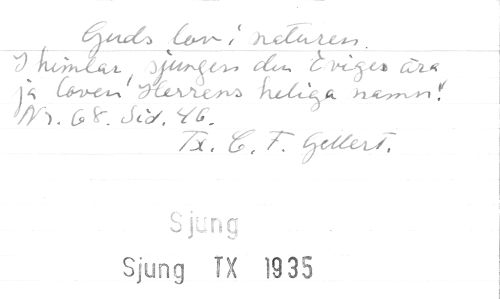 Guds lov i naturen.
I himlar, sjungen den Eviges ära
ja loven Herrens heliga namn!
Nr. 68. Sid. 46.
Tx. C. F. Gellert.
Sjung
Sjung TX 1935